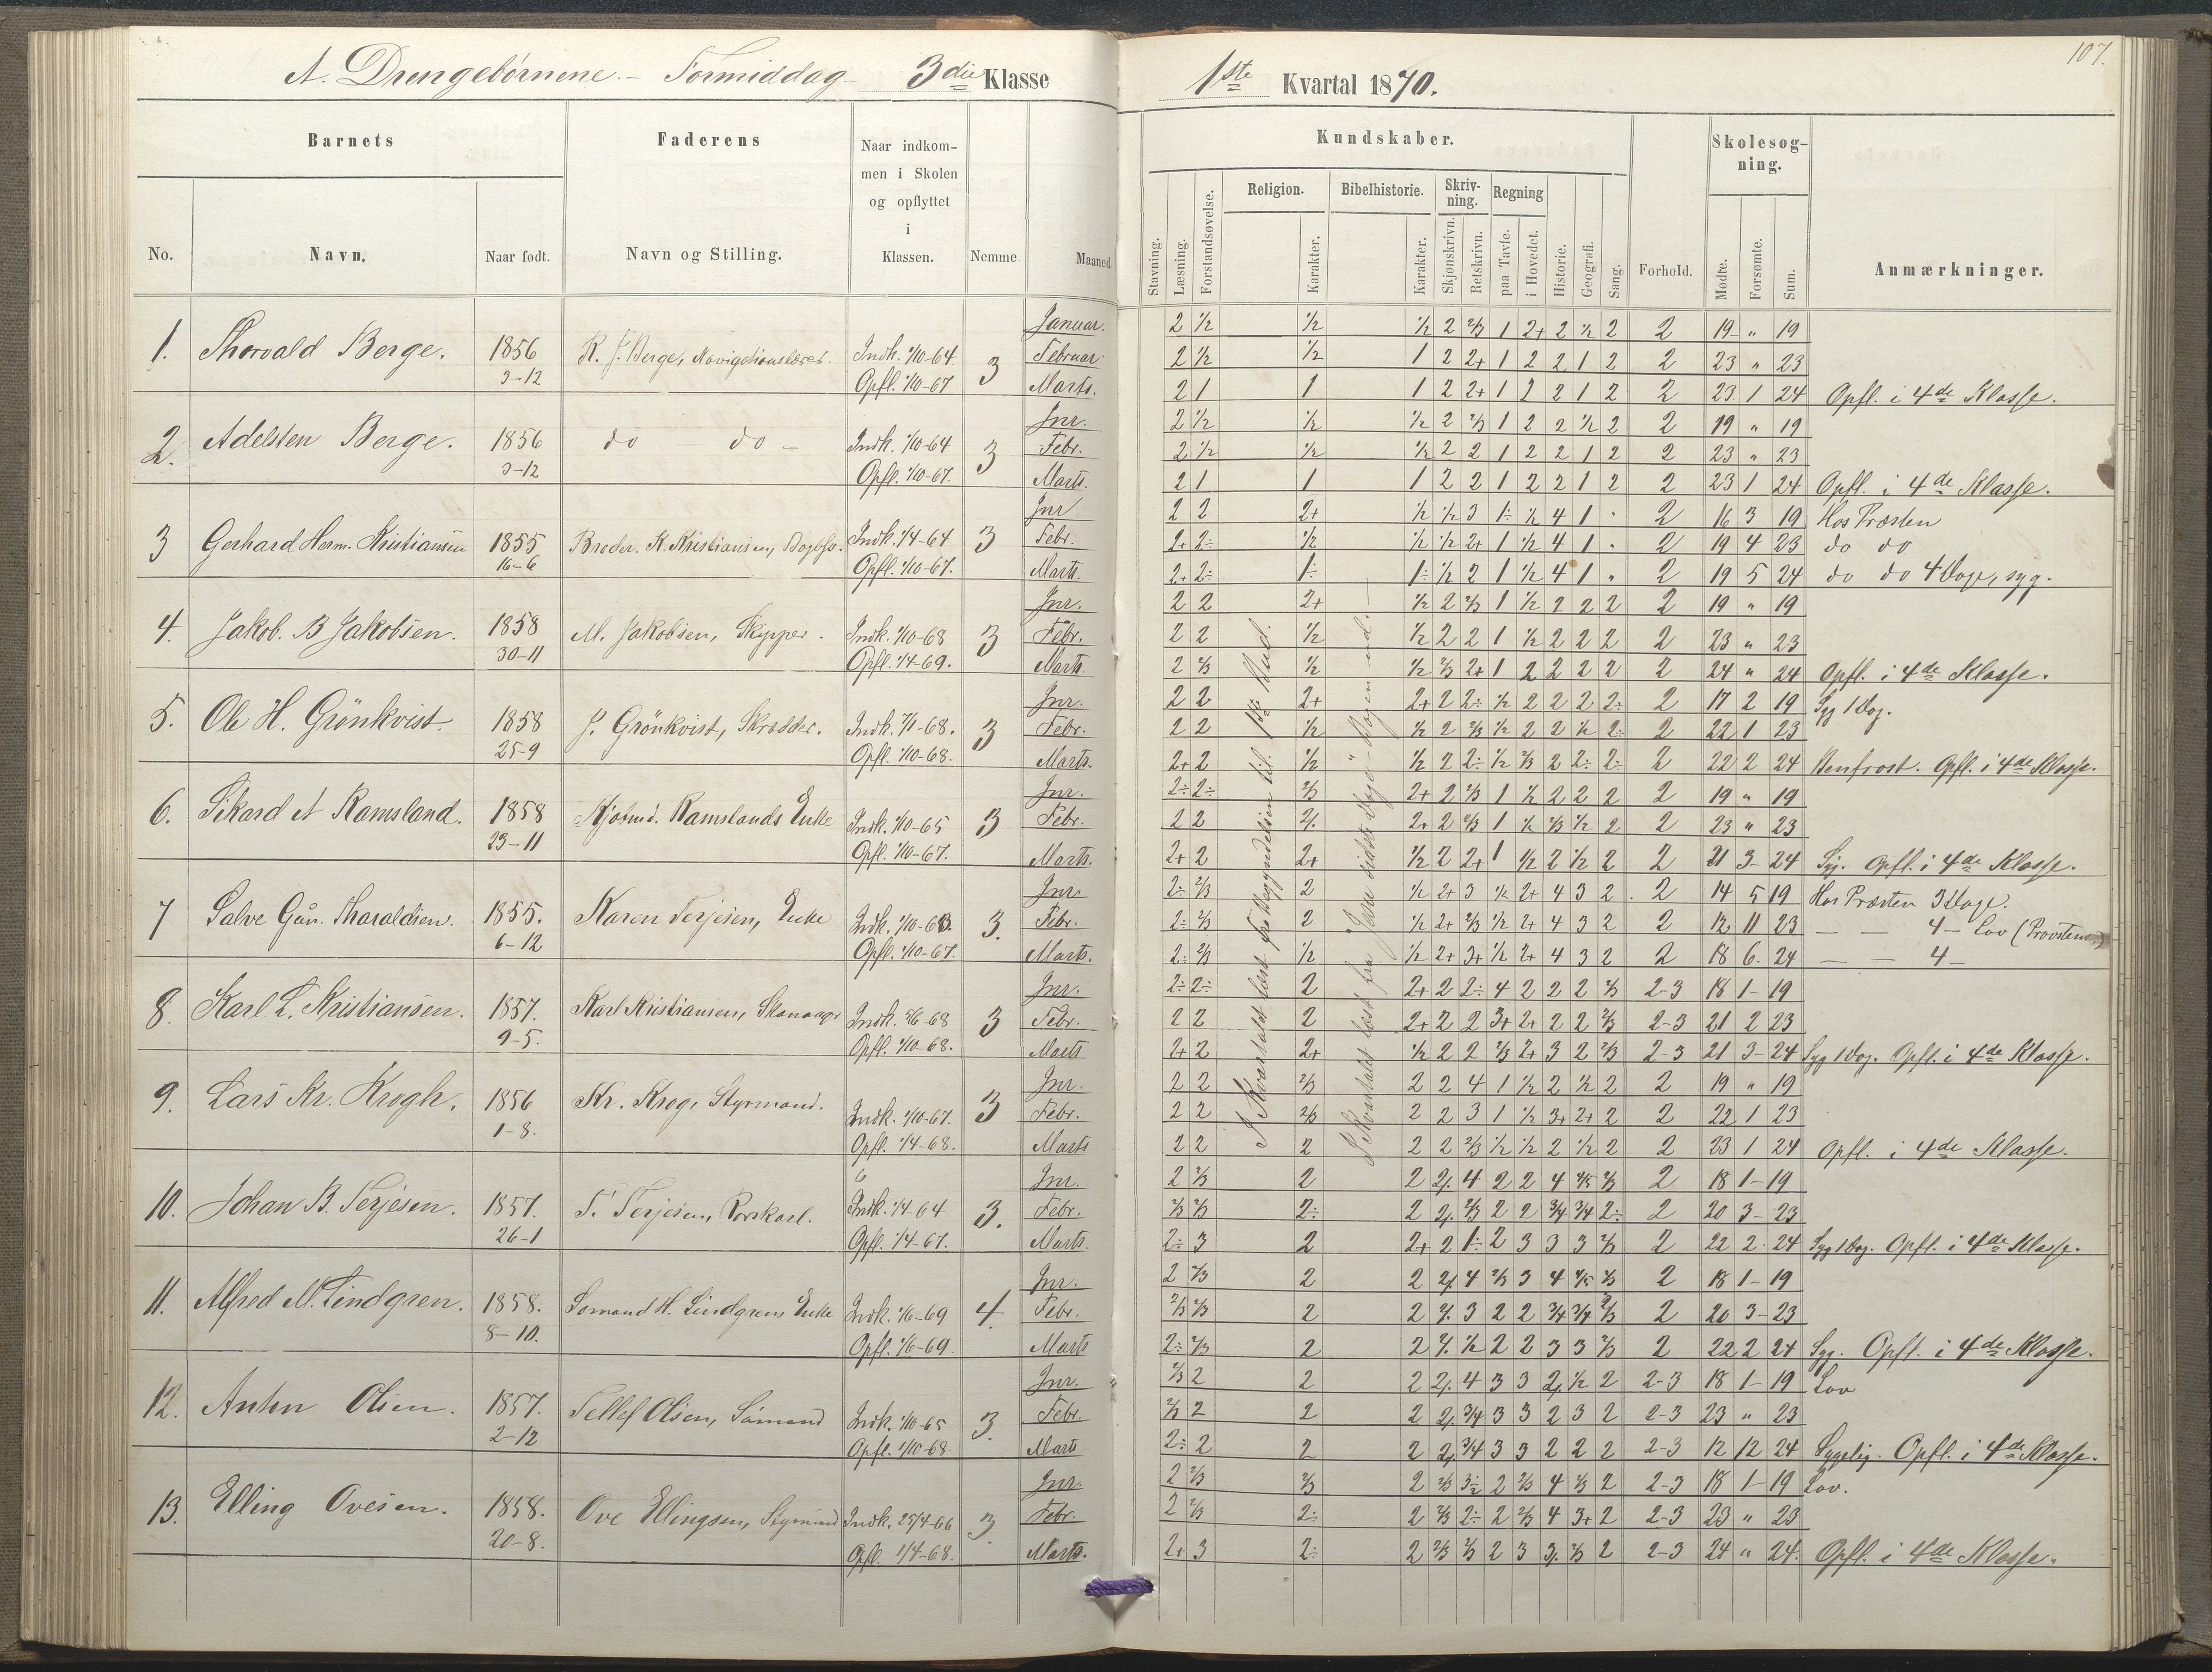 107.
A. Drengebørnene. - Formiddag 3die Klasse
1ste Kvartal 1870.
Barnets
Faderens
Naar indkom-
men i Skolen
og opflyttet
i
Klassen.
No.
Navn.
Naar født.
Navn og Stilling.
Nemme.
Maaned.
Kundskaber.
Skolesøg-
ning.
Religion. Bibelhistorie. Skriv-
ning. Regning
Stavning. Læsning. Forstandsøvelse. Karakter. Karakter. Skjønskrivn. Retskrivn. paa Tavle. i Hovedet. Historie. Geografi. Sang.
Forhold.
Mødte. Forsømte. Sum.
Anmærkninger.
1. Thorvald Berge. 1856 3-12 R. J. Berge, Navigationslærer. Indk. 1/10-64 Opfl. 1/10-67 3
Januar. 2 1/2 1/2 1/2 2 2/3 1 2+ 2 1/2 2 2 19 " 19
Februar 2 1/2 1/2 1 2 2+ 1 2 2 1 2 2 23 " 23
Marts. 2 1 1 1 2 2+ 1 2 2 1 2 2 23 1 24 Opfl. i 4de Klasse.
2. Adelsten Berge. 1856 3-12 do - do - Indk. 1/10-64 Opfl. 1/10-67. 3
Jnr. 2 1/2 1/2 1/2 2 2/3 1 2 2 1/2 2 2 19 " 19
Febr. 2 1/2 1/2 1/2 2 2 1 2 2 1 2 2 23 " 23
Marts. 2 1 1 1 2 2 1 2 2 1 2 2 23 1 24 Opfl. i 4de Klasse.
3 Gerhard Herm. Kristiansen 1855 16-6 Broder. K. Kristiansen, Indk. 1/4-64 Opfl. 1/10-67. 3
Jnr 2 2 2+ 1/2 1/2 3 1÷ 1/2 4 1 " 2 16 3 19 Hos Præsten
Febr. 2+ 2÷ 1/2 1/2 1/2 2+ 1 1/2 4 1 " 2 19 4 23 do do
Marts. 2+ 2÷ 1÷ 1÷ 1/2 2 1 1/2 4 1 " 2 19 5 24 do do 4 Dage, syg.
4. Jakob. B Jakobsen. 1858 30-11 M. Jakobsen, Skipper. Indk. 1/10-68 Opfl. 1/4-69. 3
Jnr. 2 2 2+ 1/2 2 2/3 1 1/2 2 2 2 2 19 " 19
Febr. 2 2 1/2 1/2 2 2 1 1/2 2 2 2 2 23 " 23
Marts. 2 2/3 1/2 1/2 2/3 2+ 1 2 2 2 2 2 24 " 24 Opfl. i 4de Klasse.
5. Ole H. Grönkvist. 1858 25-9 J. Grönkvist, Skrædder. Indk. 7/1-68. Opfl. 1/10-68. 3
Jnr. 2 2 2+ 2+ 2 2÷ 1/2 2 2 2 2÷ 2 17 2 19 Syg 1 Dag.
Febr. 2 2 1/2 1/2 2 2/3 1/2 2 2 1/2 2÷ 2 22 1 23
Marts. 2+ 2 1/2 1/2 2 2÷ 1/2 2/3 2 2÷ 2÷ 2 22 2 24 Opfl. i 4de Klasse.
6. Sikard A Ramsland. 1858 23-11 Ramslands Enke Indk. 1/10-65 Opfl. 1/10-67. 3
Jnr. 2÷ 2÷ 2/3 2+ 2 2/3 1 1/2 2 2 2 2 19 " 19
Febr. 2 2 2/. 2+ 2 2/3 1 1/2 2/3 1/2 2 2 23 " 23
Marts. 2+ 2 2+ 1/2 2 2+ 1 1/2 2 1/2 2 2 21 3 24 Syg. Opfl. i 4de Klasse.
7 Salve Gün. Tharaldsen. 1855. 6-12 Karen Terjesen, Enke Indk. 1/10-63. Opfl. 1/10-67. 3.
Jnr. 2÷ 2/3 2 1/2 2+ 3 1/2 2+ 4 3 2 2 14 5 19 Hos Præsten 3 Dage.
Febr. 2÷ 2/3 2 1/2 2+ 2/3 1/2 2+ 4 3 2 2 12 11 23 - - 4 - Lov (Provsten.)
Marts. 2÷ 2/3 1/2 1/2 2+ 3+ 1/2 2+ 4 3 2 2 18 6 24 - - 4 -
8. Karl L. Kristiansen. 1857. 9-5. Karl Kristiansen, Indk. 5/6-68 Opfl. 1/10-68. 3
Jnr. 2÷ 2÷ 2 2+ 2 2÷ 4 2 2 2 2/3 2-3 18 1 19
Febr. 2 2 2 2+ 2 2 3+ 2+ 2 2 2/3 2-3 21 2 23
Marts 2+ 2 2+ 1/2 2 2 2/3 2+ 3 2 2/3 2-3 21 3 24 Syg 1 Dag. Opfl. i 4de Klasse.
9. Lars Kr. Krogh. 1856 1-8. Kr. Krog, Styrmand. Indk. 1/10-67. Opfl. 1/4-68. 3
Jnr. 2 2 2/3 2 2 4 1 1/2 2 1/2 2 2 19 " 19
Febr. 2 2 2/3 2 2 3 1 1/2 3+ 2+ 2 2 22 1 23
Marts 2 2 2 2 2 2/3 1/2 1/2 2 1/2 2 2 23 1 24 Opfl. i 4de Klasse.
10. Johan B. Terjesen. 1857. 26-1 T. Terjesen, Indk. 1/4 64 Opfl. 1/4-67. 3.
Jnr. 2 2/3 2 2 2/. 4 2 2 4 4/5 2/3 2 18 1 19
Febr. 2/3 2/3 2÷ 2 2/. 2/3 2 2 3/4 3/4 2÷ 2 20 3 23
Marts. 2÷ 3 2 2+ 2 1÷ 2 3 3 3 2/3 2 22 2 24 Syg 1 Dag. Opfl. i 4de Klasse.
11. Alfred M. Lindgren. 1858. 8-10. H. Lindgrens Enke Indk. 1/6-69 Opfl. 1/6-69. 4.
Jnr. 2 2/3 2 2 2/. 4 2/3 3 4 4/5 2/3 2 18 1 19
Febr. 2/3 2/3 2 2 2/. 3 2 2 3/4 3/4 2/3 2 20 3 23
Marts 2÷ 2/3 2 2 2/. 1/2 2 2 3 3 2/3 2 22 2 24 Syg. Opfl. i 4de Klasse.
12. Anton Olsen. 1857. 2-12 Tellef Olsen, Sömand Indk. 1/10-65 Opfl. 1/10-68 3.
Jnr. 2/3 2 2 2 2/. 4 3 3 2/. 1/2 2 2-3 18 1 19 Lov
Febr. 2/3 2 2 2 2/. 3/4 3 3 2 3 2 2-3 23 " 23
Marts 2÷ 2 2 2 2/. 3/4 3 3 2 2 2 2-3 12 12 24 Sygelig. Opfl. i 4de Klasse.
13. Elling Ovesen. 1858. 20-8. Ove Ellingsen, Styrmand Indk. 25/4-66 Opfl. 1/4-68. 3.
Jnr. 2 2/3 2/3 2 2/3 3÷ 2 2/3 4 2/3 2 2-3 18 1 19 Lov.
Febr. 2 2/3 2÷ 2 2/3 2÷ 2 2/3 4 3+ 2 2-3 23 " 23
Marts. 2+ 3 2÷ 2 2/3 2/3 2 3 3/. 2/3 2 2-3 24 " 24. Opfl. i 4de Klasse.
I Kvartalet læst fra Begyndelsen til 1ste Bud.
I Kvartalet læst fra "Jesu sidste Dage" Bogen ud. -